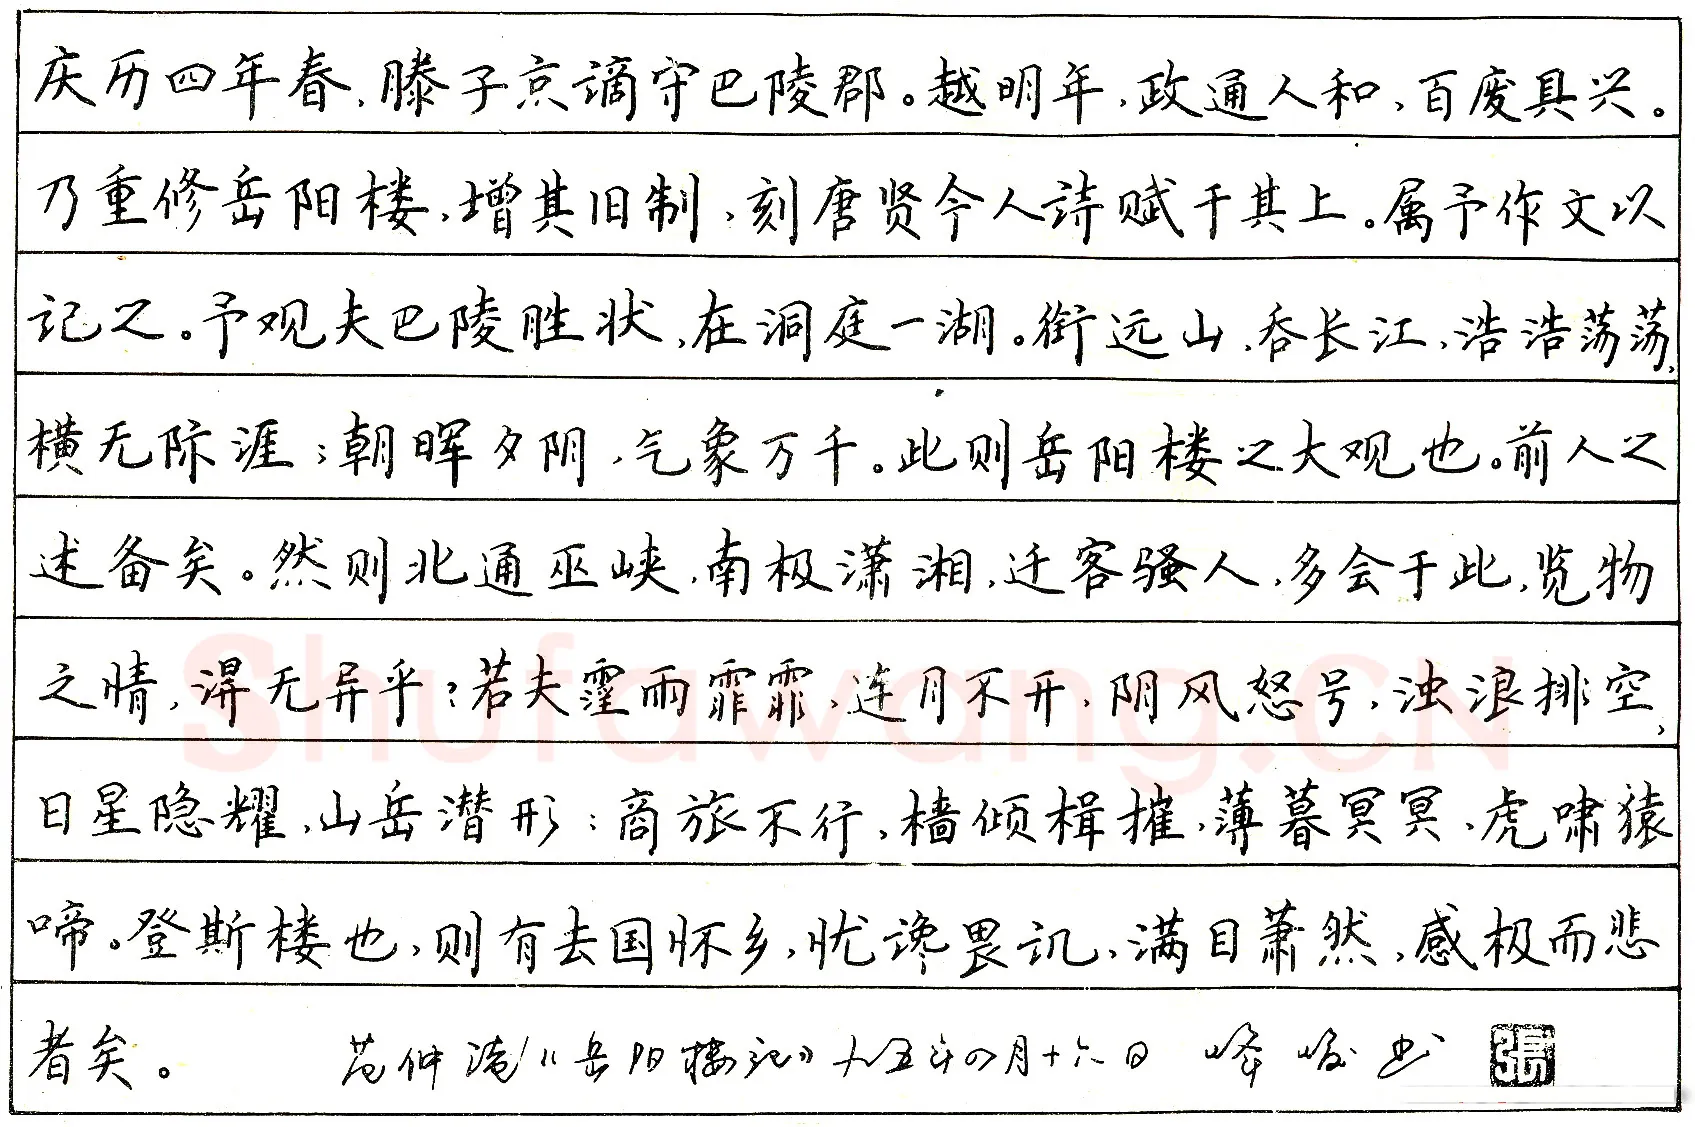 庆历四年春，滕子京谪守巴陵郡。越明年，政通人和，百废具兴。
乃重修岳阳楼，增其旧制，刻唐贤今人诗赋于其上。属予作文以
记之。予观夫巴陵胜状，在洞庭一湖。衔远山，吞长江，浩浩荡荡，
横无际涯；朝晖夕阴，气象万千。此则岳阳楼之大观也。前人之
述备矣。然则北通巫峡，南极潇湘，迁客骚人，多会于此，览物
之情，得无异乎？若夫霪雨霏霏，连月不开，阴风怒号，浊浪排空，
日星隐耀，山岳潜形；商旅不行，樯倾楫摧，薄暮冥冥，虎啸猿
啼。登斯楼也，则有去国怀乡，忧谗畏讥，满目萧然，感极而悲
者矣。 范仲淹《岳阳楼记》九五年四月十六日 峰峻书 張
Shufawang.CN